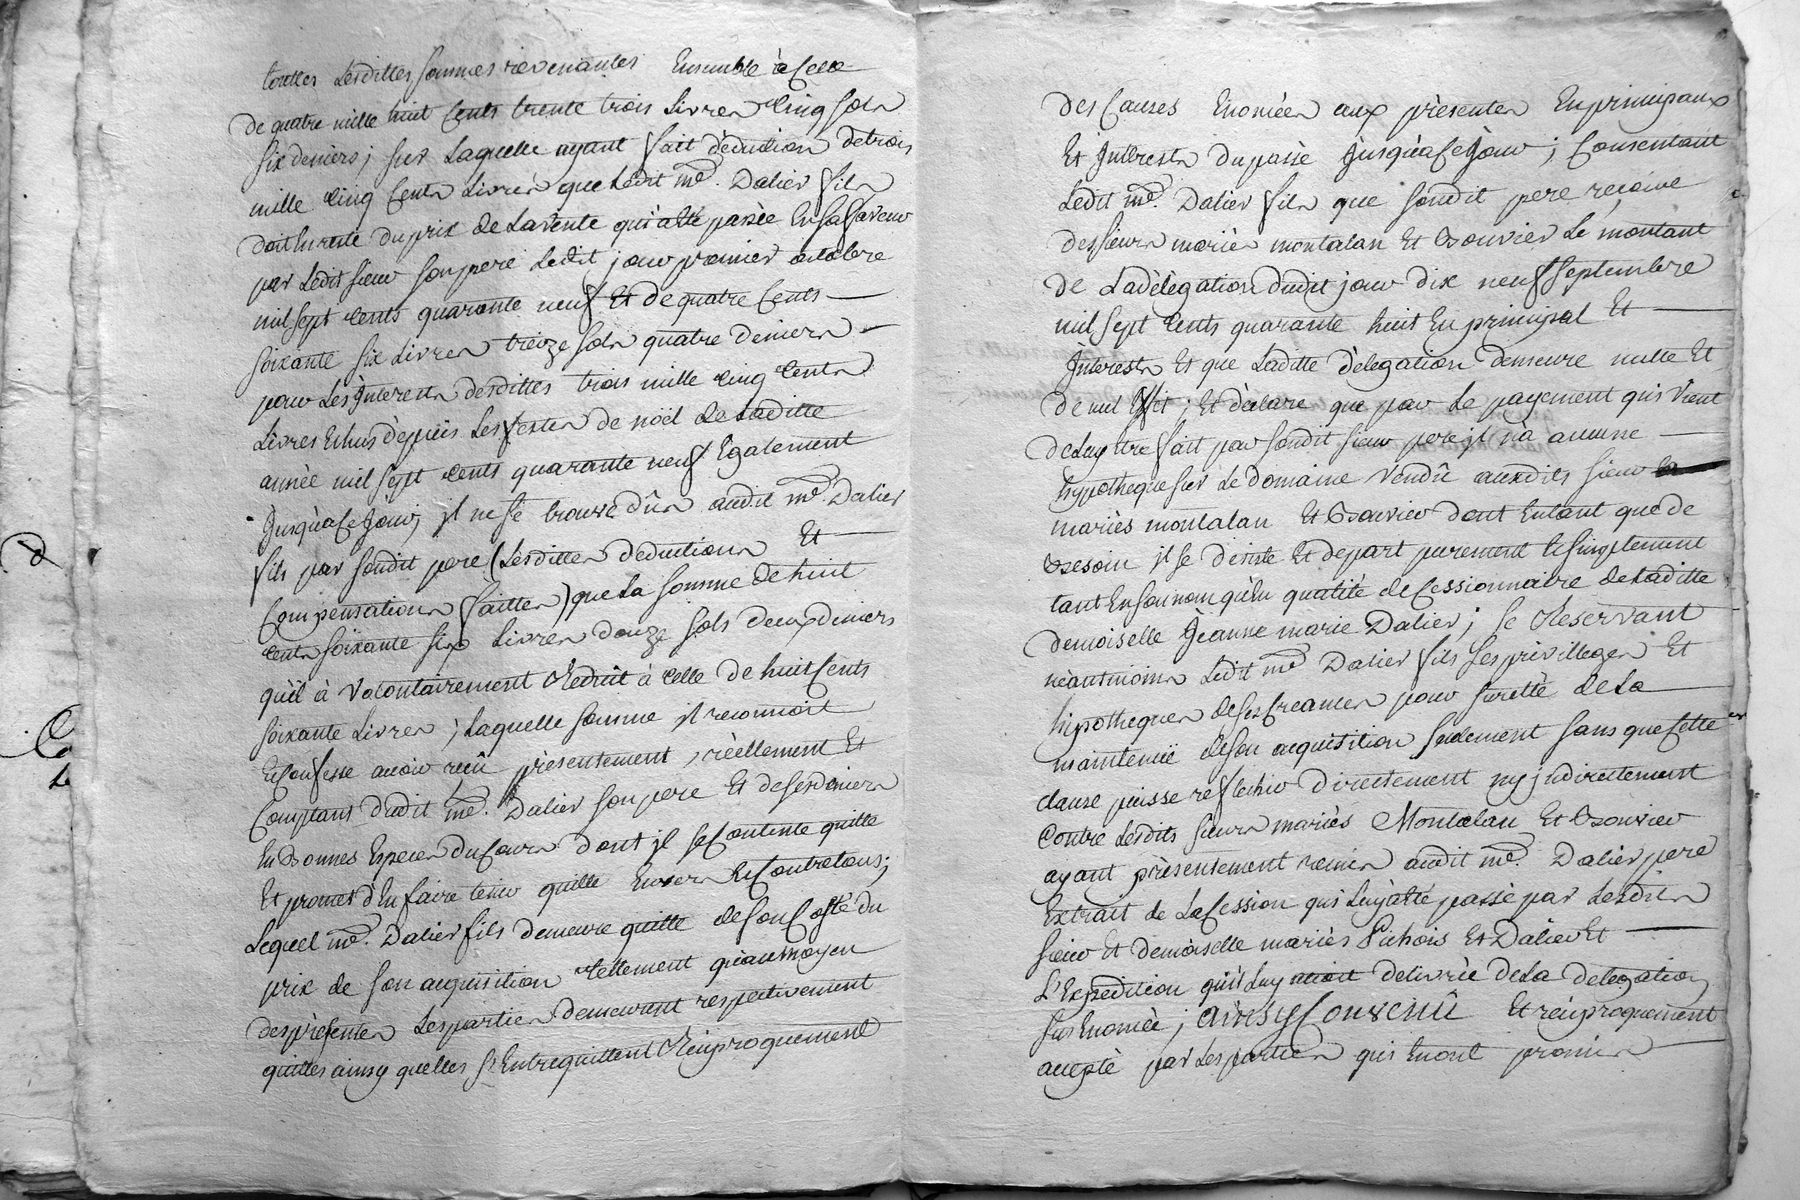 touttes lesdittes sommes revenantes Ensemble à Celle
De quatre mille huit Cents trente trois Livres Cinq sols
six deniers; sur Laquelle ayant fait déduction de trois
mille Cinq Cents Livres que Ledit me. Dalier fils
doit En reste du prix de La vente qui a été passée En sa faveur
par Ledit sieur son pere Ledit jour premier octobre
mil sept Cents quarante neuf Et de quatre Cents
soixante six Livres treize sols quatre deniers
pour Les Interests desdittes trois mille Cinq Cents
Livres Echus dépuis Les festes de noël de Laditte
année mil sept Cents quarante neuf Egalement
Jusqu'à Ce Jour, il ne se trouve dûs audit me. Dalier
fils par sondit pere (Lesdittes deductions Et
Compensations faittes) que La somme de huit
Cents soixante six Livres douze sols deux deniers
qu'il à volontairement Reduit à Celle de huit Cents
soixante Livres; Laquelle somme il reconnoit
Et Confesse avoir reçu présentement, réellement Et
Comptant dudit me. Dalier son pere Et de ses deniers
En Bonnes Especes du Cours dont il se Contente quitte
Et promet d'En faire tenir quitte Envers Et Contre tous;
Lequel me. Dalier fils demeure quitte de son Costé du
prix de son acquisition tellement qu'au moyen
des présentes Les parties demeurent respectivement
quittes ainsy quelles s'Entrequittent Réciproquement
des Causes Enoncées aux présentes En principaux
Et Interests du passé Jusqu'à Ce Jour; Consentant
Ledit me. Dalier fils que sondit pere reçoive
des sieurs mariés montalan Et Bouvier Le montant
de La délegation dudit jour dix neuf septembre
mil sept Cents quarante huit En principal Et
Interests Et que Laditte délegation demeure nulle Et
de nul Effet; Et déclare que par Le payement qui Vient
de Luy être fait par sondit sieur pere il n'à aucune
hypotheque sur Le domaine Vendû auxdits sieur
mariés montalan Et Bouvier dont Entant que de
Besoin il se désiste Et départ purement Et simplement
tant En son nom qu'En qualité de Cessionnaire de Laditte
demoiselle Jeanne marie Dalier; se Reservant
néantmoins Ledit me Dalier fils ses privilleges Et
hipotheques de ses Creances pour sureté de La
maintenüe de son acquisition seulement sans que Cette
clause puisse reflechir Directement ny indirectement
Contre Lesdits sieurs mariés Montalan Et Bouvier
ayant présentement remis audit me. Dalier pere
Extrait de La Cession qui Luy a été passé par Lesdits
sieur Et demoiselle mariés Pichois Et Dalier Et
L'Expédition qui Luy avoit délivrée de La delegation
sus Enoncée; ainsy Convenû Et réciproquement
accepté par Les parties qui En ont promis